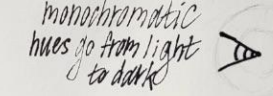 monochromatic
hues go from light
to dark